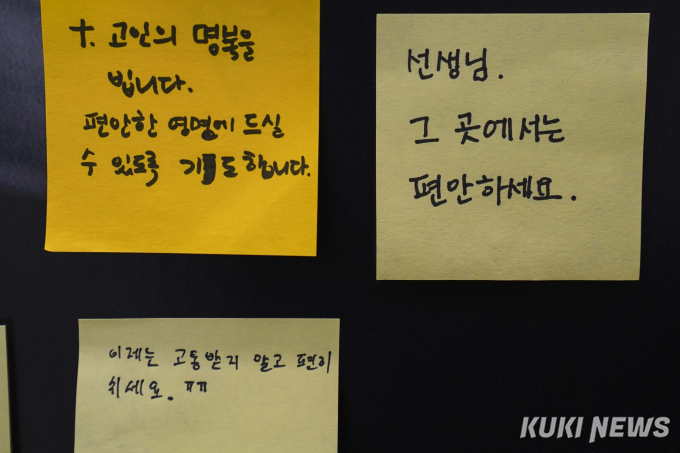 †. 고인의 명복을
빕니다.
편안한 영면에 드실
수 있도록 기도합니다.
선생님.
그 곳에서는
편안하세요.
이제는 고통받지 말고 편히
쉬세요. ㅠㅠ
KUKI NEWS